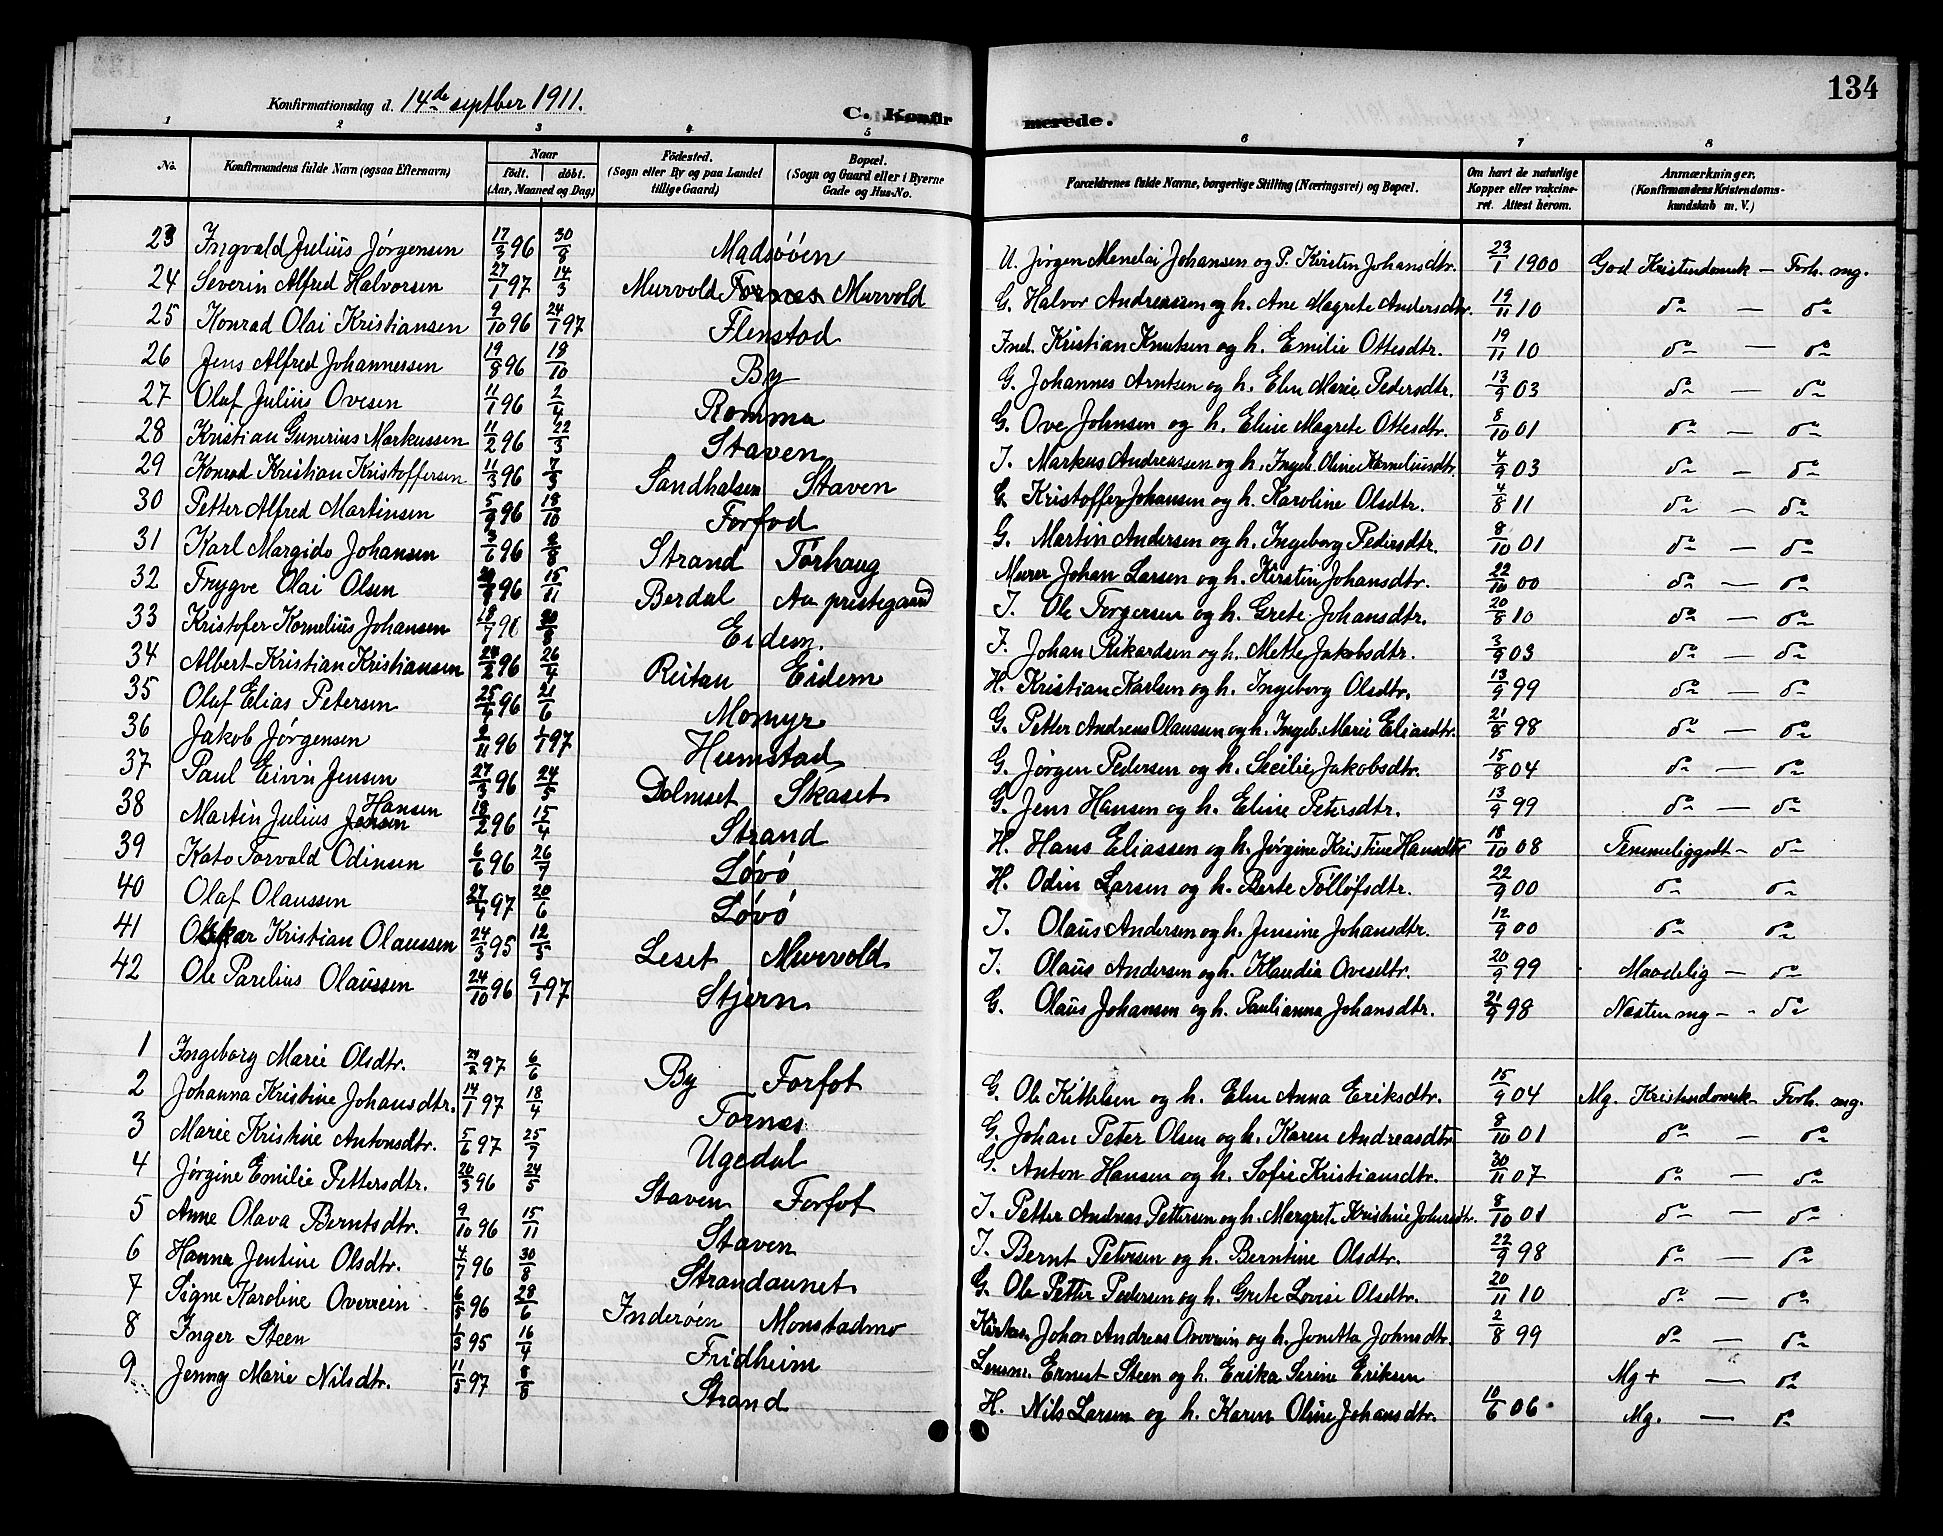 134
Konfirmationsdag d. 14de septber 1911.
C. Konfirmerede.
1 2 3 4 5 6 7 8
No. Konfirmandens fulde Navn (ogsaa Efternavn) Naar födt. döbt. (Aar, Maaned og Dag) Födested. (Sogn eller By og paa Landet tillige Gaard) Bopæl. (Sogn og Gaard eller i Byerne Gade og Hus-No. Forældrenes fulde Navne, borgerlige Stilling (Næringsvei) og Bopæl. Om havt de naturlige Kopper eller vakcineret. Attest herom. Anmærkninger. (Konfirmandens Kristendomskundskab m. V.)
23 Ingvald Julius Jørgensen 17/3 96 30/8 Madsööen U. Jörgen Menelai Johansen og P. Kirsten Johansdtr. 23/1 1900 God Kristendomsk — Forh. mg.
24 Severin Alfred Halvorsen 27/1 97 14/3 Murvold Fornes Murvold G. Halvor Andreassen og h. Ane Magrete Andersdtr. 19/11 10 do — do
25 Konrad Olai Kristiansen 9/10 96 24/1 97 Flenstad Ind. Kristian Knutsen og h. Emilie Ottesdtr. 19/11 10 do — do
26 Jens Alfred Johannessen 19/8 96 18/10 By G. Johannes Arntsen og h. Elen Marie Pedersdtr. 13/9 03 do — do
27 Olaf Julius Ovesen 11/1 96 2/4 Romma G. Ove Johnsen og h. Eline Magrete Ottesdtr. 8/10 01 do — do
28 Kristian Gunerius Markussen 11/2 96 22/3 Staven I. Markus Andreassen og h. Ingeb. Oline Korneliusdtr. 4/9 03 do — do
29 Konrad Kristian Kristoffersen 11/3 96 7/5 Sandhalsen Staven G. Kristoffer Johansen og h. Karoline Olsdtr. 4/8 11 do — do
30 Petter Alfred Martinsen 5/9 96 18/10 Forfod G. Martin Andersen og h. Ingeborg Pedersdtr. 8/10 01 do — do
31 Karl Margido Johansen 3/6 96 2/8 Strand Törhaug Murer Johan Larsen og h. Kirstin Johansdtr. 22/10 00 do — do
32 Trygve Olai Olsen 96 15/11 Berdal Aa prestegaard I. Ole Torgersen og h. Grete Johansdtr. 20/8 10 do — do
33 Kristofer Kornelius Johansen 18/7 96 30/8 Eidem. I. Johan Rikardsen og h. Mette Jakobsdtr. 3/9 03 do — do
34 Albert Kristian Kristiansen 24/2 96 26/4 Reitan Eidem H. Kristian Karlsen og h. Ingeborg Olsdtr. 13/9 99 do — do
35 Olaf Elias Petersen 25/4 96 21/6 Momyr G. Petter Andreas Olaussen og h. Ingeb. Marie Eliasdtr. 21/8 98 do — do
36 Jakob Jørgensen 2/11 96 1/1 97 Humstad G. Jörgen Pedersen og h. Secilie Jakobsdtr. 15/8 04 do — do
37 Paul Eivin Jensen 27/3 96 24/5 Dolmset Skaset G. Jens Hansen og h. Eline Petersdtr. 13/9 99 do — do
38 Martin Julius Jensen Hansen 18/2 96 15/4 Strand H. Hans Eliassen og h. Jørgine Kristine Hansdtr 18/10 08 Temmeliggodt — do
39 Kato Torvald Odinsen 6/6 96 26/7 Løvö H. Odin Larsen og h. Berte Töllöfsdtr. 22/9 00 do do
40 Olaf Olaussen 27/4 97 20/6 Løvö I. Olaus Andersen og h. Jensine Johansdtr. 12/9 00 do do
41 Oskar Kristian Olaussen 24/3 95 12/5 Leset Murvold I. Olaus Andersen og h. Klaudia Ovesdtr. 20/9 99 Maadelig — do
42 Ole Parelius Olaussen 24/10 96 9/1 97 Stjern G. Olaus Johansen og h. Paulianna Johansdtr. 21/9 98 Næsten mg — do
1 Ingeborg Marie Olsdtr. 97 6/6 By Forfot G. Ole Kittelsen og h. Elen Anna Eriksdtr. 15/9 04 Mg. Kristendomsk — Forh. mg.
2 Johanna Kristine Johansdtr. 14/1 97 18/4 Fornes G. Johan Peter Olsen og h. Karen Andreasdtr 8/10 01 do — do
3 Marie Kristine Antonsdtr. 5/6 97 25/7 Ugedal G. Anton Hansen og h. Sofie Kristiansdtr. 30/11 07 do — do
4 Jørgine Emilie Pettersdtr. 20/3 96 24/5 Staven Forfot I. Petter Andreas Pettersen og h. Margrete Kristine Johnsdtr. 8/10 01 do — do
5 Anne Olava Berntsdtr. 9/10 96 15/11 Staven I. Bernt Petersen og h. Berntine Olsdtr. 22/9 98 do — do
6 Hanna Jentine Olsdtr. 4/7 96 30/8 Strandaunet G. Ole Petter Pedersen og h. Grete Lovise Olsdtr. 20/11 10 do — do
7 Signe Karoline Overrein 6/5 96 28/6 Inderöen Monstadmo Kirkes. Johan Andreas Overrein og h. Jonetta Johnsdtr. 2/8 99 do — do
8 Inger Steen 1/3 95 16/4 Fridheim Lensm. Ernest Steen og h. Erika Serine Eriksen Mg + — do
9 Jenny Marie Nilsdtr. 11/5 97 8/8 Strand H. Nils Larsen og h. Karen Oline Johansdtr. 10/6 06 Mg. — do